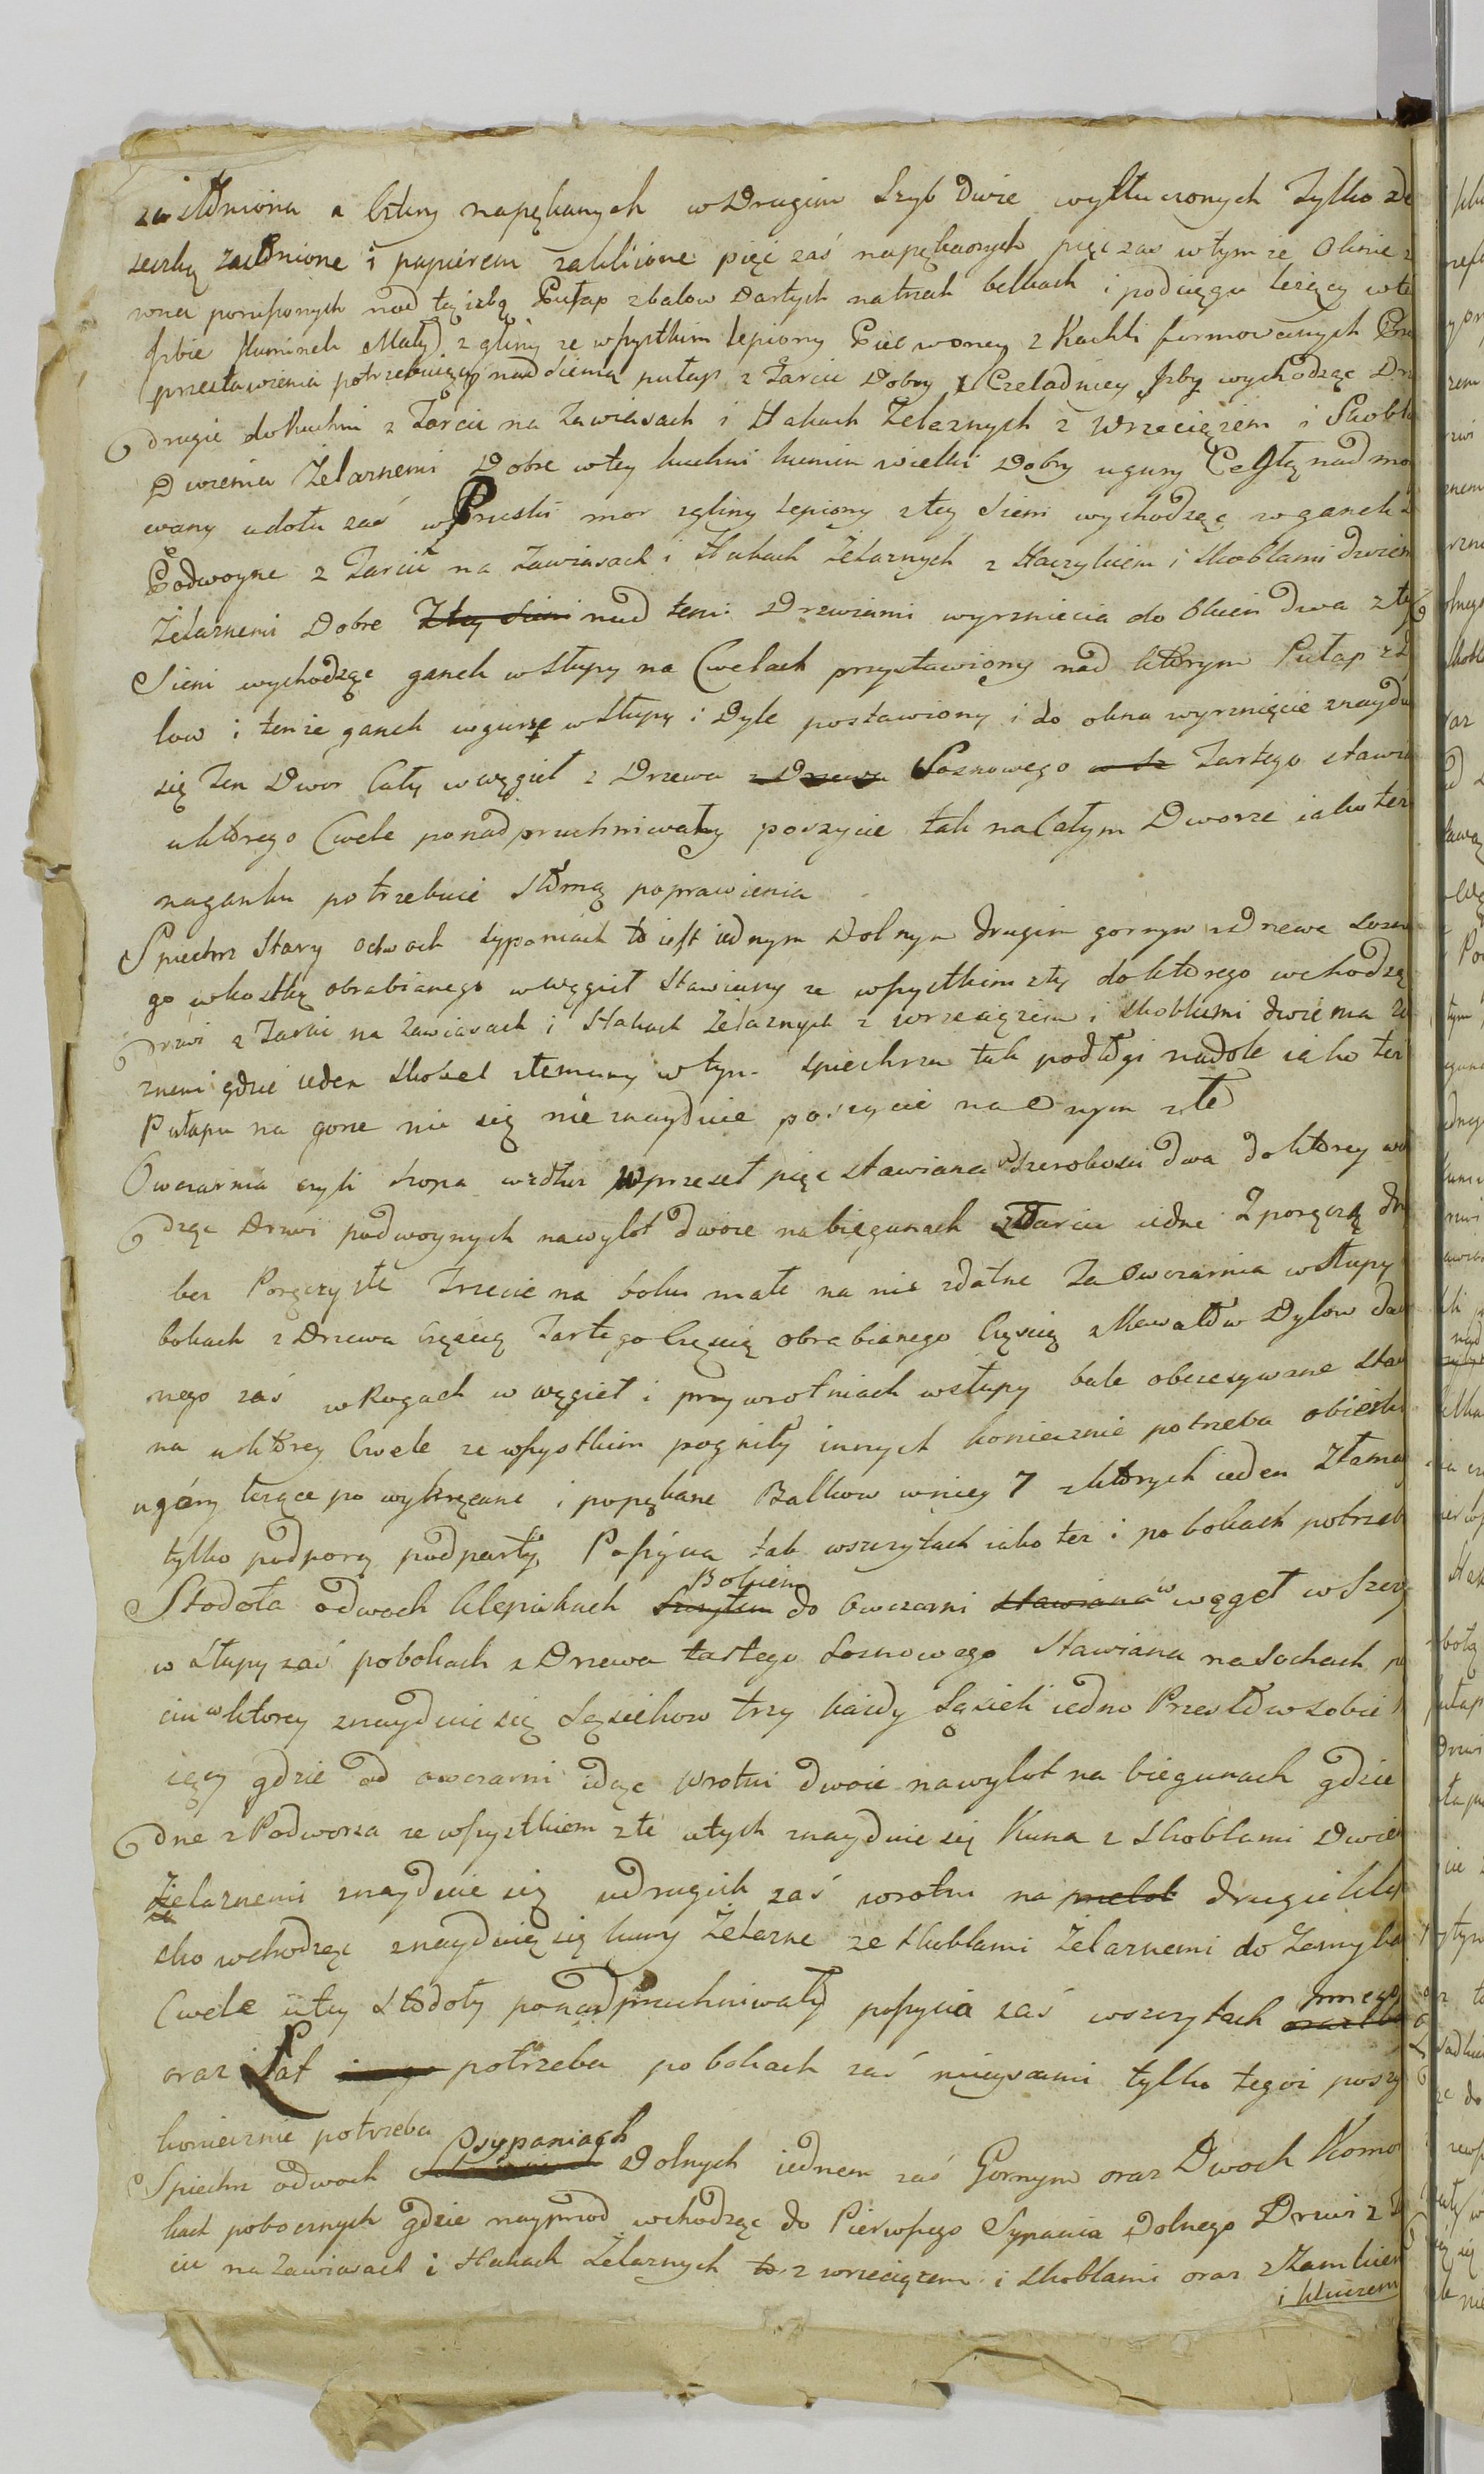 zasłoniona a cztery napękanych w Drugim Szyb dwie wytłuczonych Tylko de
seczką zasłnione i papierem zaklione pięć zaś napękanych pięć zaś w tym że Oknie z
nad tą izbą Pułap z balow Dartych na trzech belkach i podciągu leżący w te
Izbie kominek Mały z gliny ze wszystkim lepiony Piec w oney z Kachli formowanych
przestawienia potrzebuiący nad Sienią pułap z Tarcic Dobry z Czeladney Izby wychodząc Drz
drugie do kuchni z Tarcic na Zawiasach i Hakach Żelaznych z Wrzeciązem i Skobla
Dwiema Żelaznemi Dobre w tey kuchni komin wielki Dobry u gury Cegłą nad mo
wany u dołu zaś w Pruski mor z gliny lepiony z tey Sieni wychodząc w ganek
Podwoyne z Tarcic na Zawiasach i Hakach Żelaznych z Haczykiem i skoblami dwiem
Żelaznemi Dobre Z tey Sieni nad temi Drzwiami wyrznięcia do Okien dwa z tey
Sieni wychodząc ganek w słupy na Cwelach przystawiony nad ktorym Pułap z
low i tenże ganek w gurze w słupy i Dyle postawiony i do okna wyrznięcie znaydu
się Ten Dwor Cały w węgieł z Drzewa z Drzewa Sosnowego Tartego stawia
u ktorego Cwele ponadpruchniwały poszycie tak na Całym Dworze iako też
na ganku potrzebuie słomą poprawienia
Spiechrz Stary o dwoch sypaniach to iest iednym Dolnym drugim gornym z Drzewa sosno
go w kostkę obrabianego w węgieł stawiany ze wszystkim zły do ktorego wchodzą
drzwi z Tarcic na zawiasach i Hakach Żelaznych z wrzeciązem i skoblami dwiema że
znemi gdzie ieden skobel złamany w tym spiechrzu tak podłogi na dole iako też
Pułapu na gorze nie się nie znayduie poszycie na onym złe
Owczarnia czyli szopa wzdłuż w przeseł pięć stawiana w szerokości dwa do ktorey wcho
dząc Drzwi podwoynych na wylot dwoie na biegunach z Tarcic iedne z poręczą dru
bez Poręczy złe Trzecie na boku małe na nic zdatne Ta Owczarnia w słupy
bokach z Drzewa Częścią Tartego Częścią obrabianego Częścią z Kawałow Dylow daw
nego zaś w Rogach w węgieł i przy wrotniach w słupy bale obciesywane staw
na u ktorey Cwele ze wszystkim pogniły innych koniecznie potrzeba
u góry leżące powykręcane i popękane Balkow w niey 7 z ktorych ieden złama
tylko podporą podparty Poszycia tak w szczytach iako też i po bokach potrzeb
Stodoła o dwoch klepiskach Szczytem Bokiem do Owczarni stawiana w węgeł w Szczy
w słupy zaś po bokach z Drzewa tartego sosnowego stawiana na sochach
ciu w ktorey znayduie się Sąsiekow trzy każdy Sąsiek iedno Przesło w sobie
iący gdzie od owczarni idąc wrotni dwoie na wylot na biegunach gdzie
dne z Podworza ze wszystkiem złe u tych znayduie się Kuna z skoblami dwiem
Żelaznemi znayduie się u drugich zaś wrotni na drugie klep
sko wchodząc znayduią się kuny Żelazne ze skoblami Żelaznemi do Zamyka
Cwele u tey stodoły ponadpruchniwały poszycia zaś w szczytach innego
oraz Łat potrzeba po bokach zaś mieyscami tylko tegoż poszy
koniecznie potrzeba
Spiechrz o dwoch Sypaniach Dolnych iednem zaś Gornym oraz Dwoch Komor
kach pobocznych gdzie nayprzod wchodząc do Pierwszego Sypania Dolnego Drzwi z Ta
cic na Zawiasach i Hakach Żelaznych z wrzeciązem i skoblami oraz z Zamkiem
i kluczem